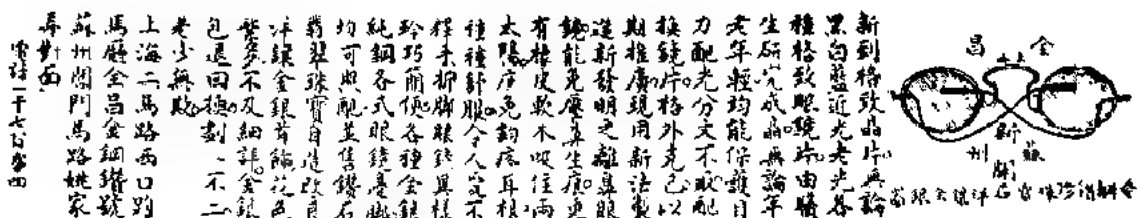 金
昌
蘇
州
新開
新到格致晶片無論
黑白藍近光老光各
種格致眼鏡片由醫
生研究成晶無論年
老年輕均能保護目
力配光分文不取配
換鏡片格外克己以
期推廣現用新法製
造新發明之離鼻眼
鏡能免壓鼻生痕更
有橡皮軟木吸住兩
太陽亦免鈎痛耳根
種種舒服令人 不
釋手抑脚眼鏡異樣
玲巧簡便各種金銀
純鋼各式眼鏡邊脚
均可照配並售鑽石
翡翠珠寶自造改良
洋鑲金銀首飾花色
繁多不及細詳金銀
包退回換劃一不二
老少無欺
上海二馬路西口跑
馬廳金昌金鋼鑽號
蘇州閶門馬路姚家
弄對面
電話一千七百 四